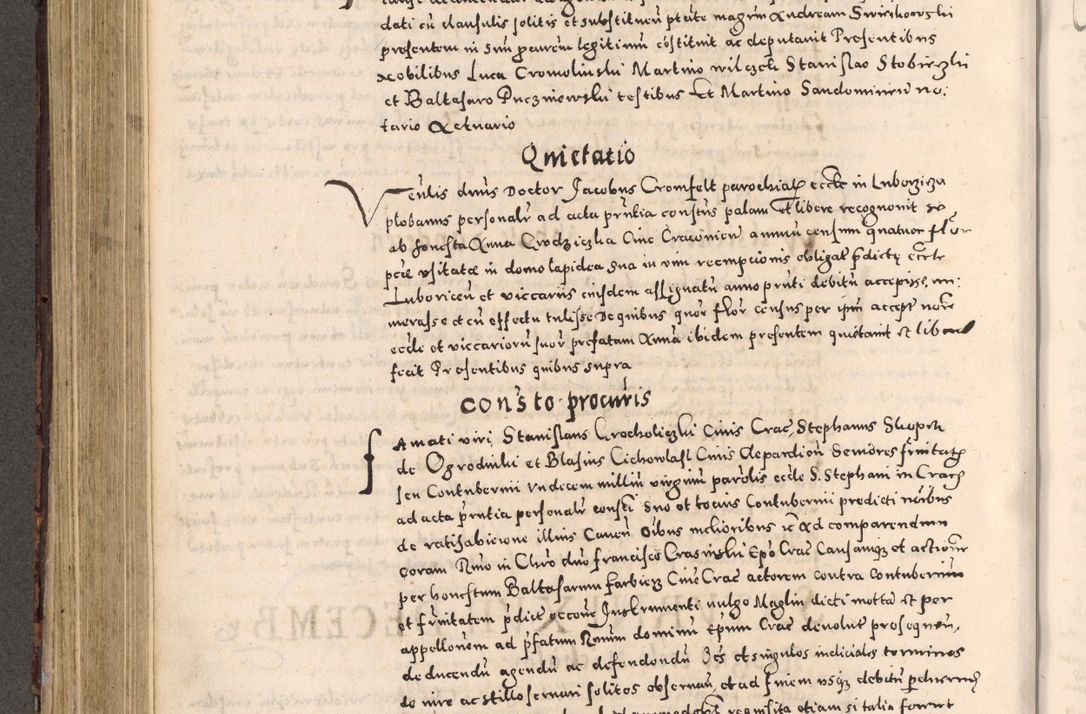 dati cu clausulis solitis et substituen ptate magrm Andream Swiechowski
presentem in sum parem legitimu costituit ac deputauit Presentibus
Nobilibus Luca Cromolinski Martino wilczek Stanislao Stobieczki
et Baltasaro Puczniowski testibus Et Martino Sandomirien no:
tario Actuario
Quietatio
Venlis dnus Doctor Jacobus Cromfelt parochial eccle in Luborzicza
plobanus personalr ad acta pntia constus palam et libere recognouit se
ab honesta Anna Grodzieczka Ciue Cracouien annuu censum quatuor flor
pcie vsitatae in domo lapidea sua in vim reempcionis obligat pdicte eccle
Luboricen et viccariis eiusdem assignatu anno pnti debitu accepisse, nu:
merasse et cu effectu tulisse De quibus quor flor census per ipm accept noie
eccle et viccarioru suor prefatam Anna ibidem presentem quietauit et libera
fecit Presentibus quibus supra
Consto procuris
Amati viri Stanislaus Crocholiczki Ciuis Crac, Stephanus Skoprk
de Ogrodniki et Blasius Cichowlasl Ciuis Clepardien Seniores frnitatis
seu Contubernii Vndecem milliu virginu parolis eccle S. Stephani in Crac
ad acta pntia personalr consti suo et tocius Contubernii predicti noibus
de ratihabicione illius Cauen oibus melioribus ic Ad comparendum
coram Rmo in Chro dno Francisco Crasinski Epo Crac Causamq et actione
per honestum Baltasarum farbierz Ciue Crac actorem contra Contubernium
et frnitatem pdict occoe Instrumenti vulgo Maglin dicti motta et per
appellonem ad pfatum Rmum dominu Epum Crac deuolut prosequen,
deducendu agendu ac defendendu Oes et singulos iudiciales terminos
de iure ac stillo seruari solitos obseruan, et ad finem vsq debitu
requisita etiam si talia forent